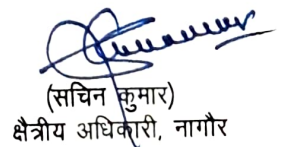 (सचिन कुमार)
क्षैत्रीय अधिकारी, नागौर